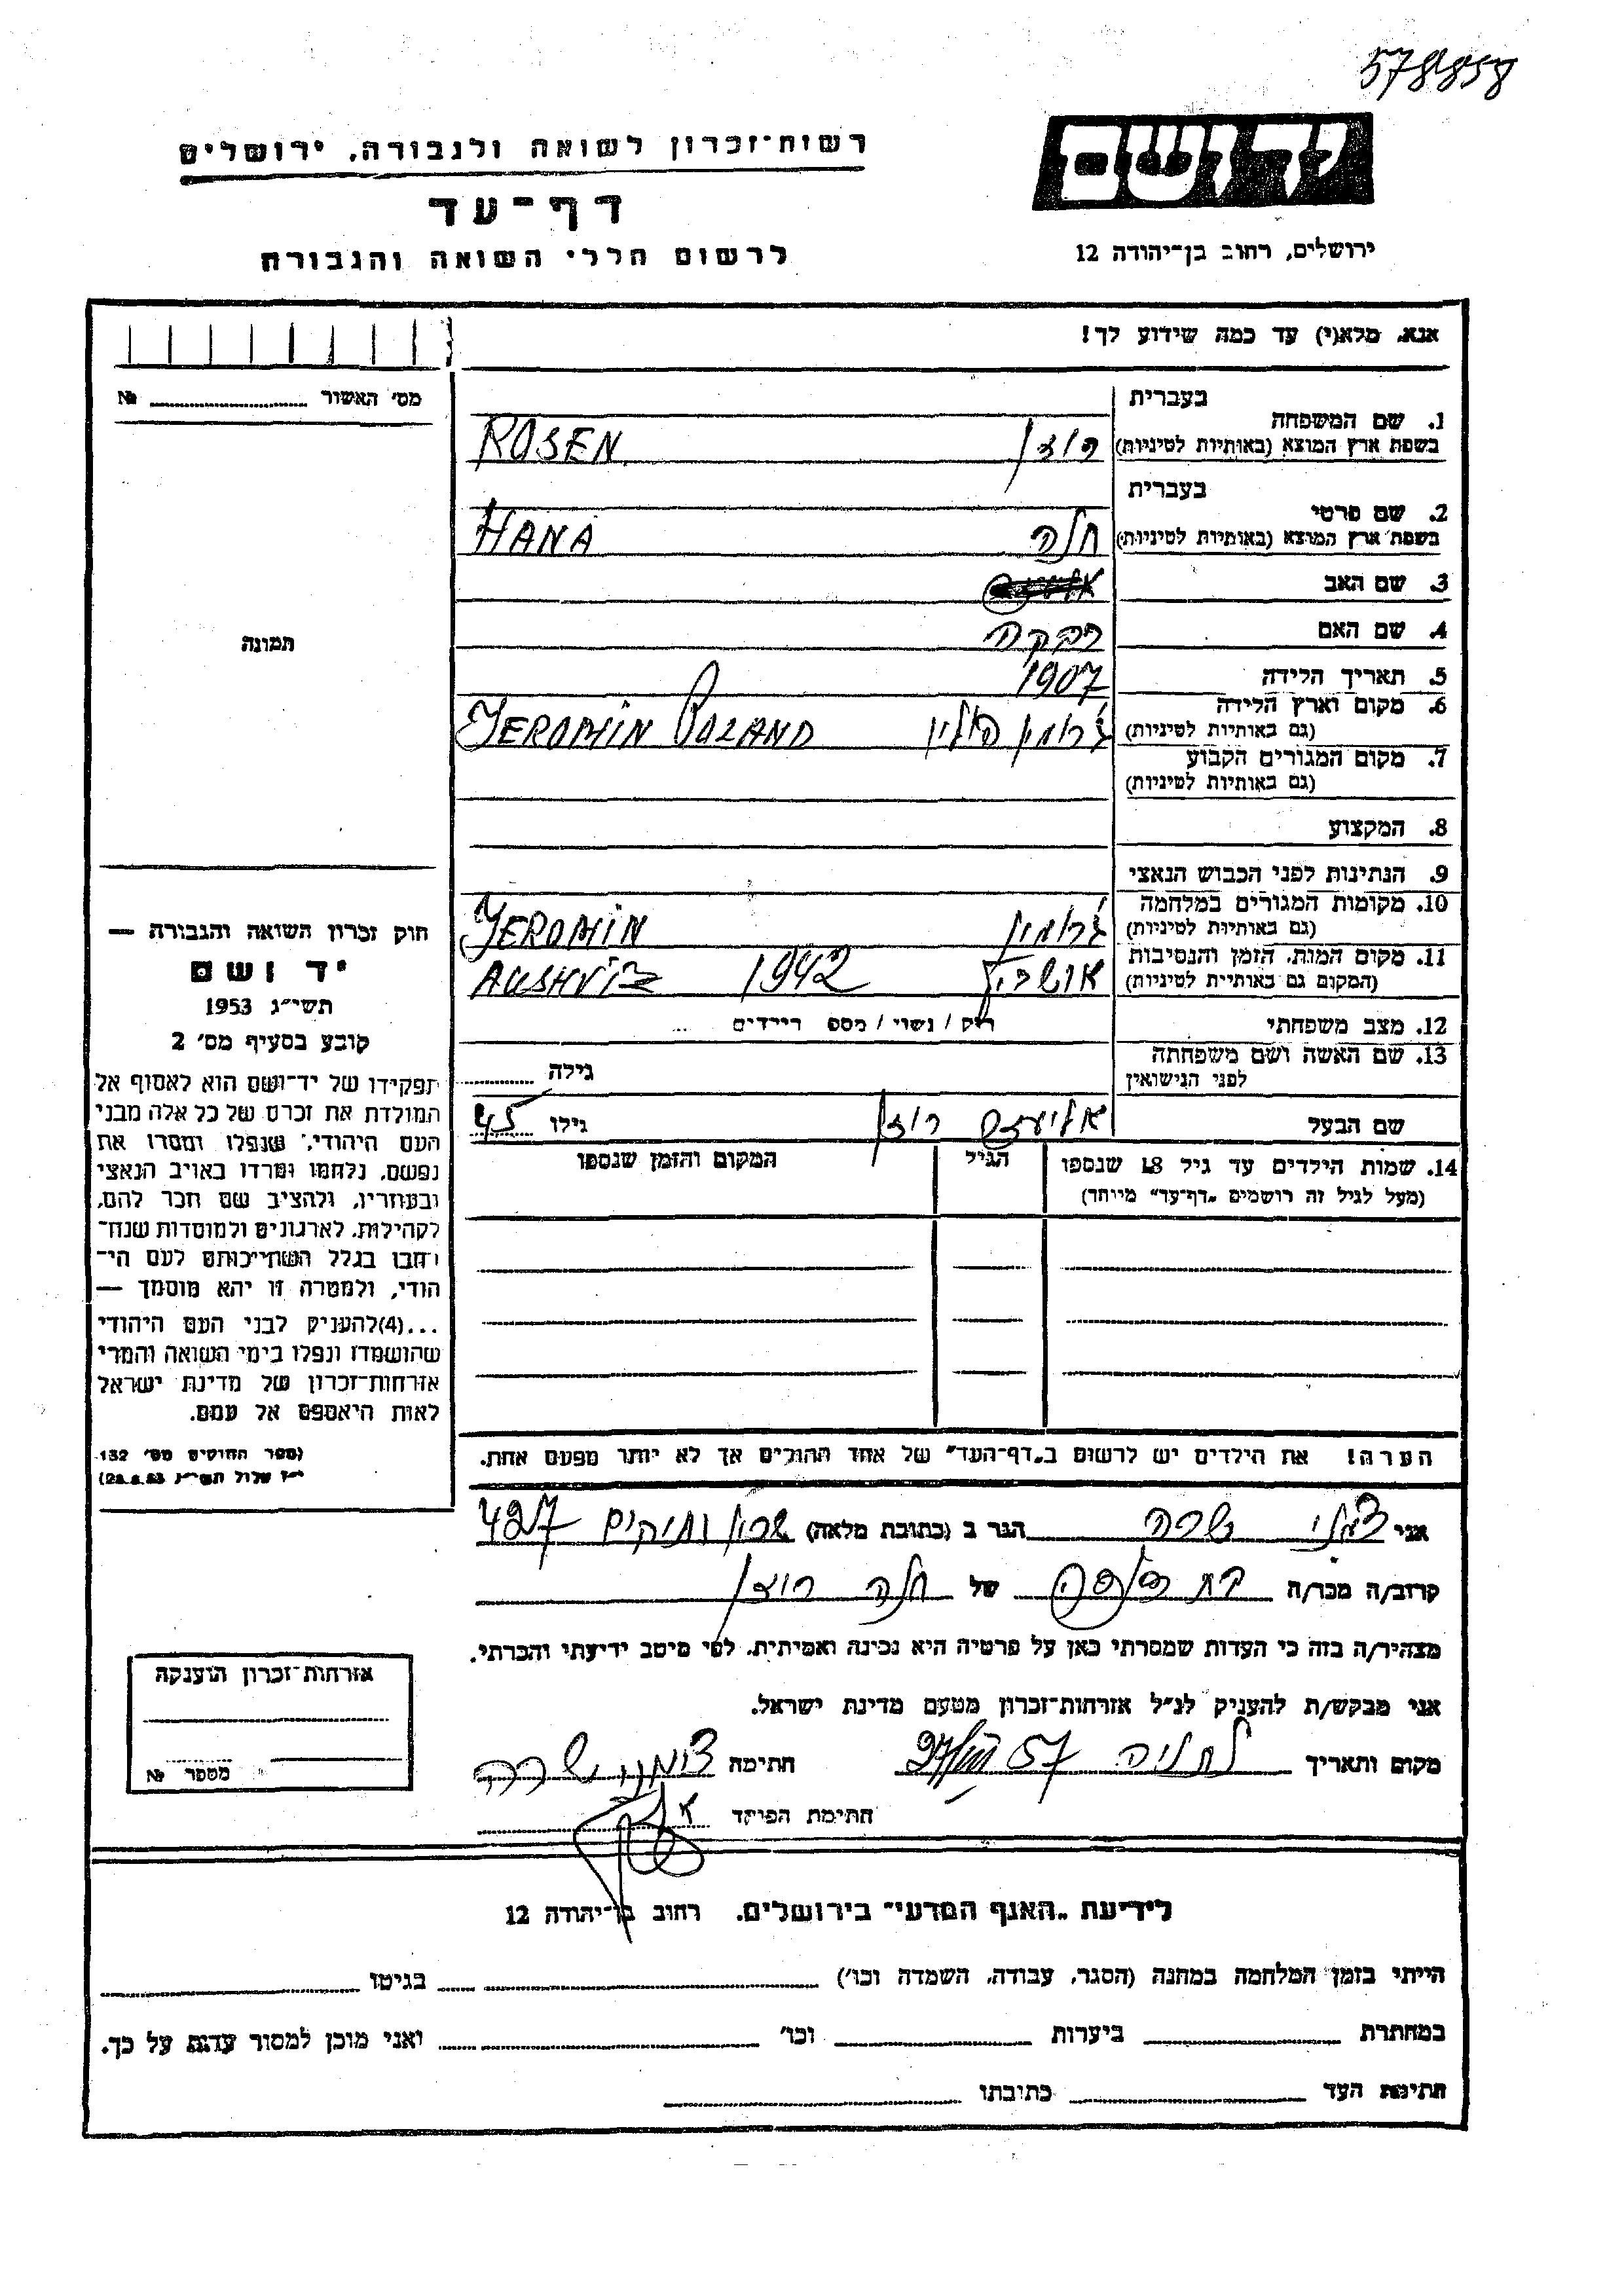 578858
יד ושם
רשות־זכרון לשואה ולגבורה, ירושלים
דף־עד
לרשום חללי השואה והגבורה
ירושלים, רחוב בן־יהודה 12
אנא, מלא(י) עד כמה שידוע לך!
מס' האשור №
תמונה
1. שם המשפחה בעברית
בשפת ארץ המוצא (באותיות לטיניות) רוזן ROSEN
2. שם פרטי בעברית
בשפת ארץ המוצא (באותיות לטיניות) חנה HANA
3. שם האב
4. שם האם רבקה
5. תאריך הלידה 1907
6. מקום וארץ הלידה
(גם באותיות לטיניות) ג'רומין פולין JEROMIN POLAND
7. מקום המגורים הקבוע
(גם באותיות לטיניות)
8. המקצוע
9. הנתינות לפני הכבוש הנאצי
10. מקומות המגורים במלחמה
(גם באותיות לטיניות) ג'רומין JEROMIN
11. מקום המות, הזמן והנסיבות
(המקום גם באותיות לטיניות) אושביץ 1942
12. מצב משפחתי רוק / נשוי / מספר הילדים
13. שם האשה ושם משפחתה
לפני הנישואין גילה
שם הבעל אליעזר רוזן גילו 45
14. שמות הילדים עד גיל 18 שנספו הגיל המקום והזמן שנספו
(מעל לגיל זה רושמים "דף־עד" מיוחד)
הערה! את הילדים יש לרשום ב"דף־העד" של אחד ההורים אך לא יותר מפעם אחת.
חוק זכרון השואה והגבורה —
יד ושם
תשי"ג 1953
קובע בסעיף מס' 2
תפקידו של יד־ושם הוא לאסוף אל
המולדת את זכרם של כל אלה מבני
העם היהודי, שנפלו ומסרו את
נפשם, נלחמו ומרדו באויב הנאצי
ובעוזריו, ולהציב שם וזכר להם,
לקהילות, לארגונים ולמוסדות שנח־
רבו בגלל השתייכותם לעם הי־
הודי, ולמטרה זו יהא מוסמך —
...(4) להעניק לבני העם היהודי
שהושמדו ונפלו בימי השואה והמרי
אזרחות־זכרון של מדינת ישראל
לאות היאספם אל עמם.
(ספר החוקים מס' 132
י"ז אלול תשי"ג 28.8.53)
אני שרה הגר ב (כתובת מלאה) ותיקים 427
קרוב/ה מכר/ה של חנה רוזן
מצהיר/ה בזה כי העדות שמסרתי כאן על פרטיה היא נכונה ואמיתית, לפי מיטב ידיעתי והכרתי.
אני מבקש/ת להעניק לנ"ל אזרחות־זכרון מטעם מדינת ישראל.
מקום ותאריך נתניה חתימה שרה
חתימת הפוקד
אזרחות־זכרון הוענקה
מספר №
לידיעת "האגף המדעי" בירושלים, רחוב בן־יהודה 12
הייתי בזמן המלחמה במחנה (הסגר, עבודה, השמדה וכו') בגיטו
במחתרת ביערות וכו' ואני מוכן למסור עדות על כך.
חתימת העד כתובתו